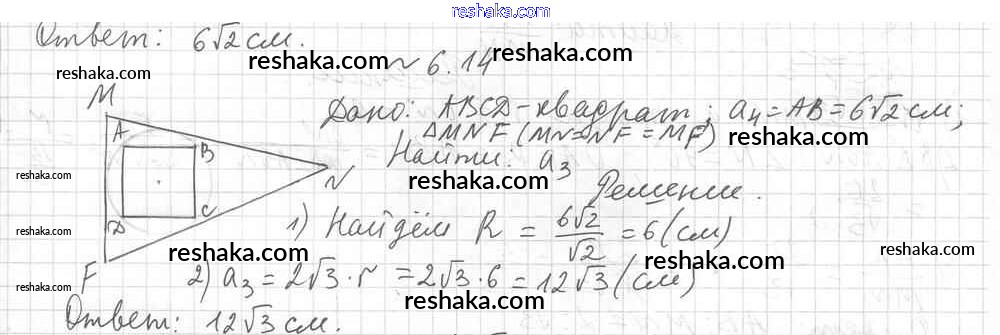 reshaka.com
Ответ: 6√2 см.
reshaka.com
reshaka.com
reshaka.com
№ 6.14
M
A
B
N
D
C
F
Дано: ABCD - квадрат; a₄ = AB = 6√2 см;
ΔMNF (MN=NF=MF)
reshaka.com
Найти: a₃
reshaka.com
reshaka.com
Решение.
1) Найдём R = 6√2/√2 = 6 (см)
reshaka.com
reshaka.com
reshaka.com
2) a₃ = 2√3 · r = 2√3 · 6 = 12√3 (см)
reshaka.com
reshaka.com
Ответ: 12√3 см.
reshaka.com